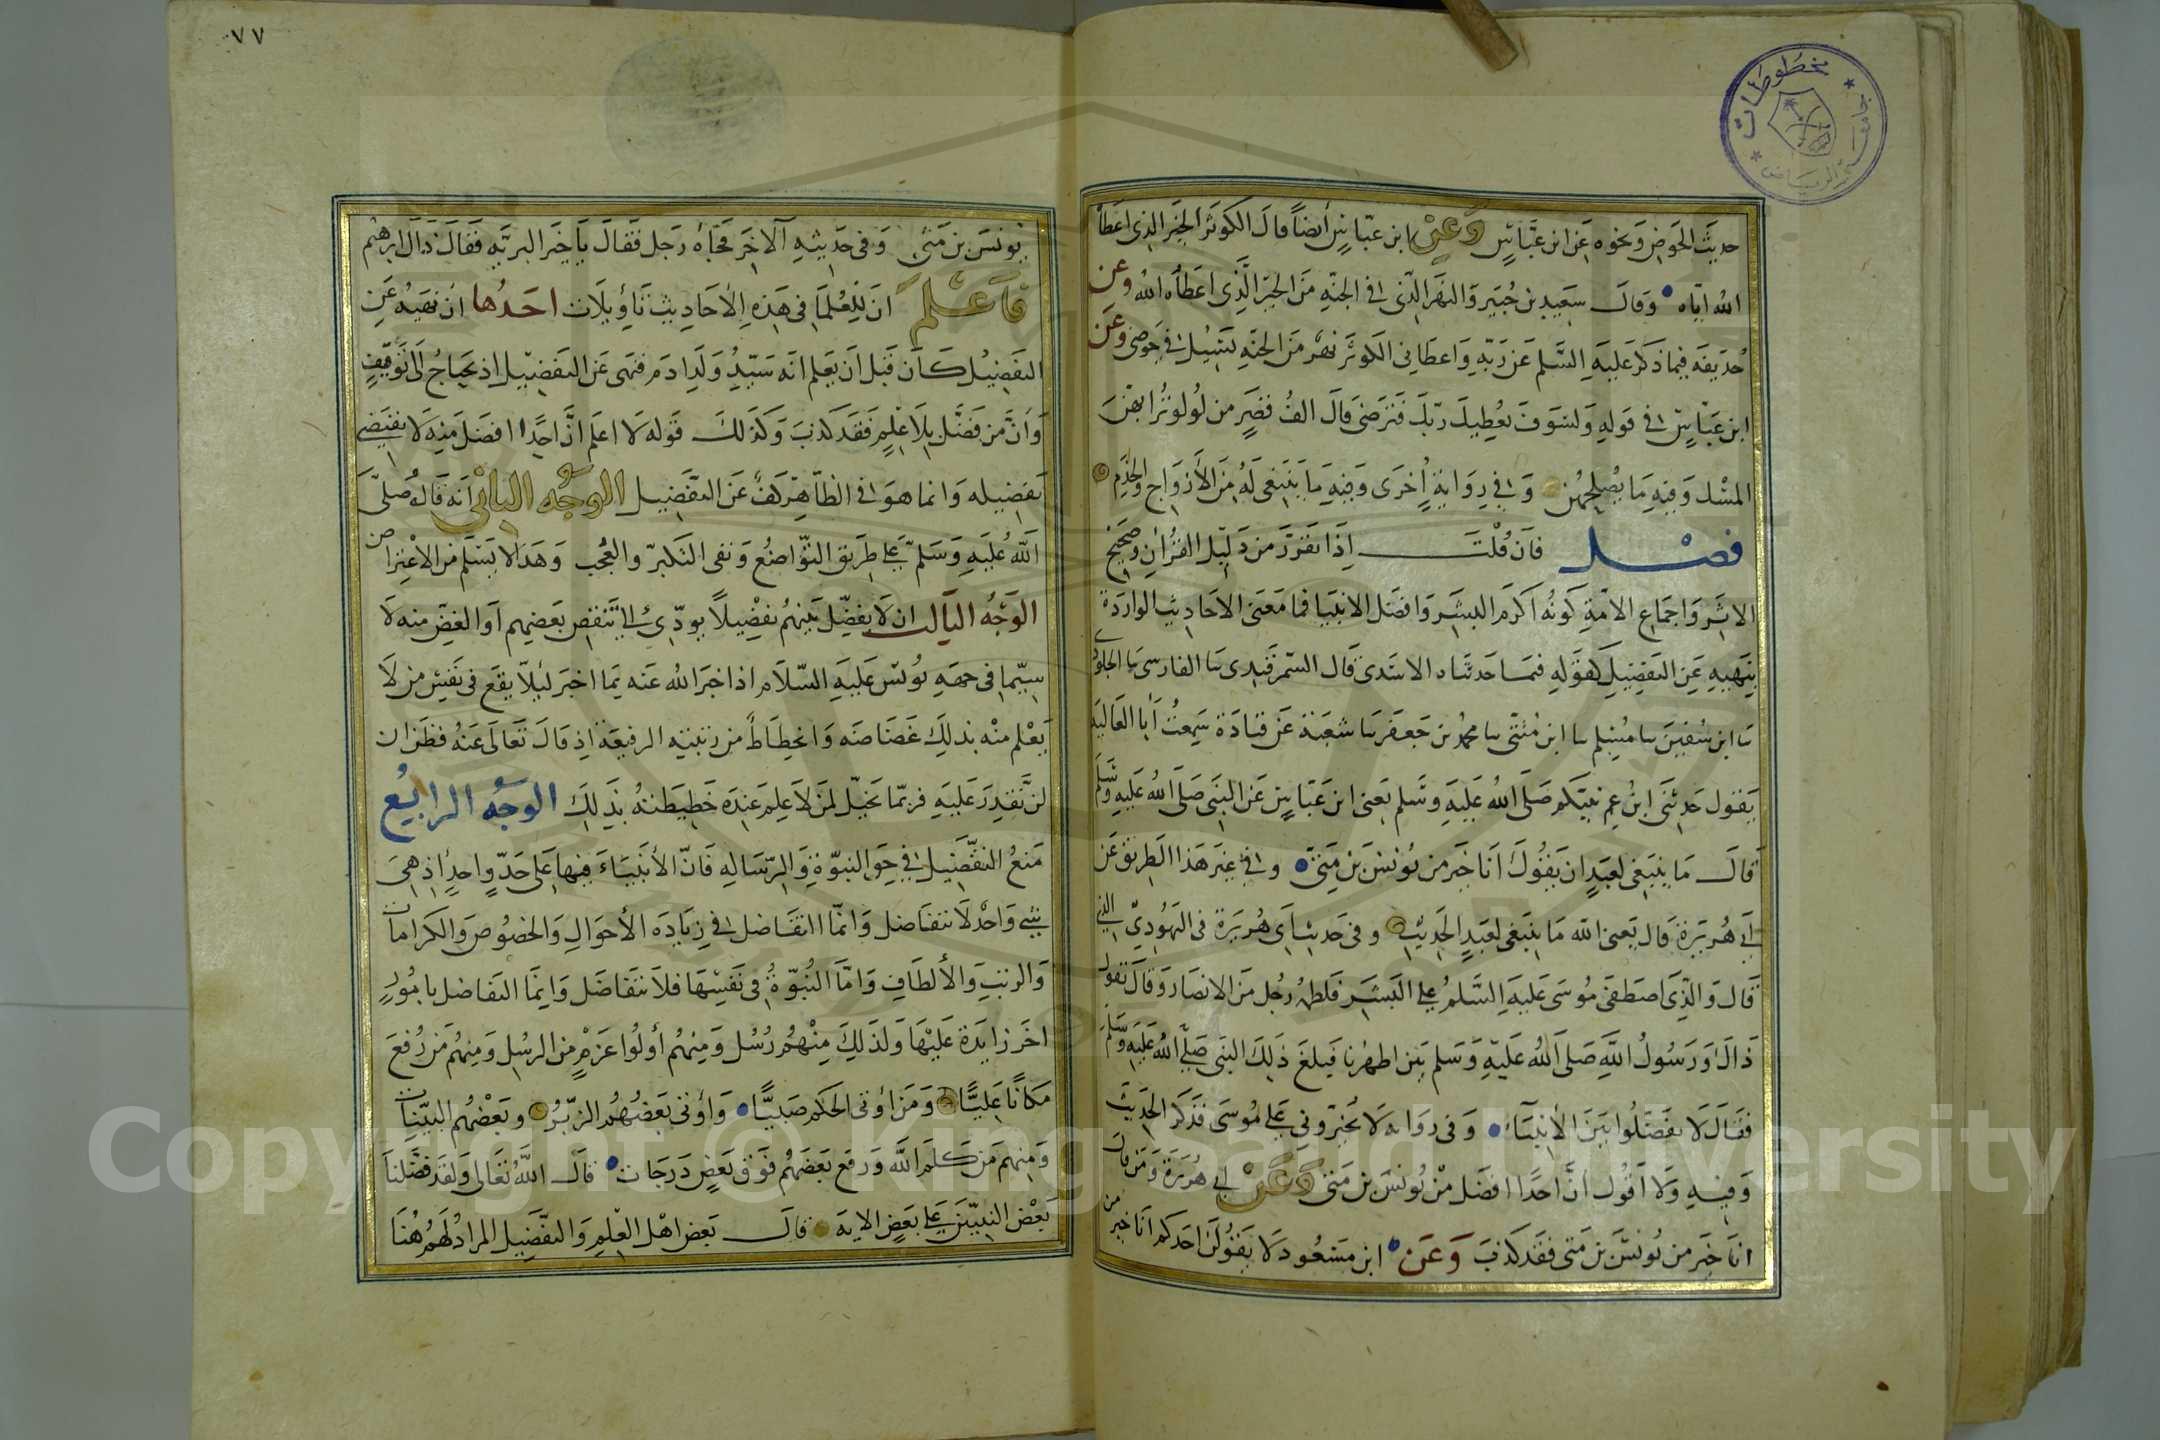 حديث الحوض ونحوه عن ابن عباس وعن ابن عباس أيضاً قال الكوثر الخير الذي اعطاه
الله اياه وقال سعيد بن جبير والنهر الذي في الجنة من الخير الذي اعطاه الله وعن
حذيفة فيما ذكر عليه السلم عن ربه واعطاني الكوثر نهر من الجنة يسيل في حوضي وعن
ابن عباس في قوله ولسوف يعطيك ربك فترضى قال الف قصر من لولو ترابهن
المسك وفيه ما يصلحهن وفي رواية أخرى وفيه ما ينبغي له من الأزواج والخدم
فصل فان قلت اذا تقرر من دليل القران وصحيح
الاثر واجماع الامة كونه اكرم البشر وافضل الانبيا فما معنى الاحاديث الواردة
بنهيه عن التفضيل كقوله فيما حدثناه الاسدى قال السمرقندى نا الفارسى نا الجلودى
نا ابن سفين نا مسلم نا ابن مثنى نا محمد بن جعفر نا شعبة عن قتادة سمعت أبا العالية
يقول حدثنى ابن عم نبيكم صلى الله عليه وسلم يعنى ابن عباس عن النبى صلى الله عليه وسلم
قال ما ينبغى لعبد ان يقول انا خير من يونس بن متى وفي غير هذا الطريق عن
أبي هريرة قال يعنى الله ما ينبغى لعبد الحديث وفى حديث ابى هريرة فى اليهودي الذي
قال والذى اصطفى موسى عليه السلم على البشر فلطمه رجل من الانصار وقال تقول
ذاك ورسول الله صلى الله عليه وسلم بين اظهرنا فبلغ ذلك النبى صلى الله عليه وسلم
فقال لا تفضلوا بين الأنبيآء وفى رواية لا تخيرونى على موسى فذكر الحديث
وفيه ولا اقول ان احدا افضل من يونس بن متى وعن أبى هريرة ومن قال
انا خير من يونس بن متى فقد كذب وعن ابن مسعود لا يقولن احدكم انا خير من
٧٧
يونس بن متى وفى حديثه الآخر فجاه رجل فقال ياخير البرية فقال ذاك ابرهيم
فاعلم ان للعلما فى هذه الأحاديث تأويلات احدها ان نهيه عن
التفضيل كان قبل ان يعلم انه سيد ولد ادم فنهى عن التفضيل اذ يحتاج الى توقيف
وان من فضل بلا علم فقد كذب وكذلك قوله لا اعلم ان احدا افضل منه لا يقتضى
تفضيله وانما هو فى الظاهر كف عن التفضيل الوجه الثانى انه قاله صلى
الله عليه وسلم على طريق التواضع ونفى التكبر والعجب وهذا لا يسلم من الاعتراض
الوجه الثالث ان لا يفضل بينهم تفضيلا يودي الى تنقص بعضهم او الغض منه لا
سيما فى جهة يونس عليه السلام اذ اخبر الله عنه بما اخبر ليلا يقع فى نفس من لا
يعلم منه بذلك غضاضة وانحطاط من رتبته الرفيعة اذ قال تعالى عنه فظن ان
لن نقدر عليه فربما يخيل لمن لا علم عنده حطيطته بذلك الوجه الرابع
منع التفضيل في حق النبوة والرسالة فان الأنبياء فيها على حد واحد إذ هى
شئ واحد لا تتفاضل وانما التفاضل في زيادة الأحوال والخصوص والكرامات
والرتب والألطاف واما النبوة فى نفسها فلا تتفاضل وانما التفاضل بامور
اخر زايدة عليها ولذلك منهم رسل ومنهم أولوا عزم من الرسل ومنهم من رفع
مكانا عليا ومن اوتى الحكم صبيا وأوتى بعضهم الزبر وبعضهم البينات
ومنهم من كلم الله ورفع بعضهم فوق بعض درجات قال الله تعالى ولقد فضلنا
بعض النبيين على بعض الاية قال بعض اهل العلم والتفضيل المراد لهم هنا
مخطوطات
جامعة الرياض
Copyright © King Saud University